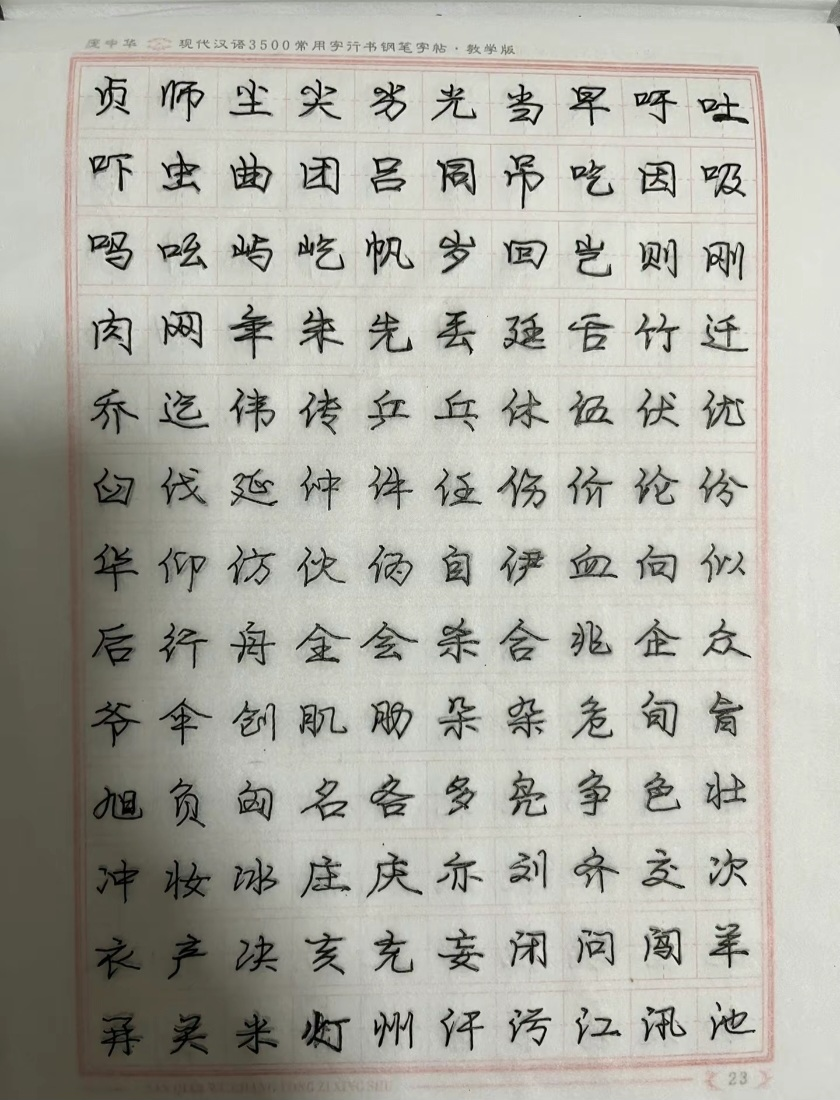 庞中华 现代汉语3500常用字行书钢笔字帖·教学版
贞师尘尖劣光当早吁吐
吓虫曲团吕同吊吃因吸
吗吆屿屹帆岁回岂则刚
肉网年朱先丢廷舌竹迁
乔迄伟传乒乓休伍伏优
臼伐延仲件任伤价伦份
华仰仿伙伪自伊血向似
后行舟全会杀合兆企众
爷伞创肌肋朵杂危旬旨
旭负匈名各多凫争色壮
冲妆冰庄庆亦刘齐交次
衣产决亥充妄闭问闯羊
并关米灯州汗污江汛池
23